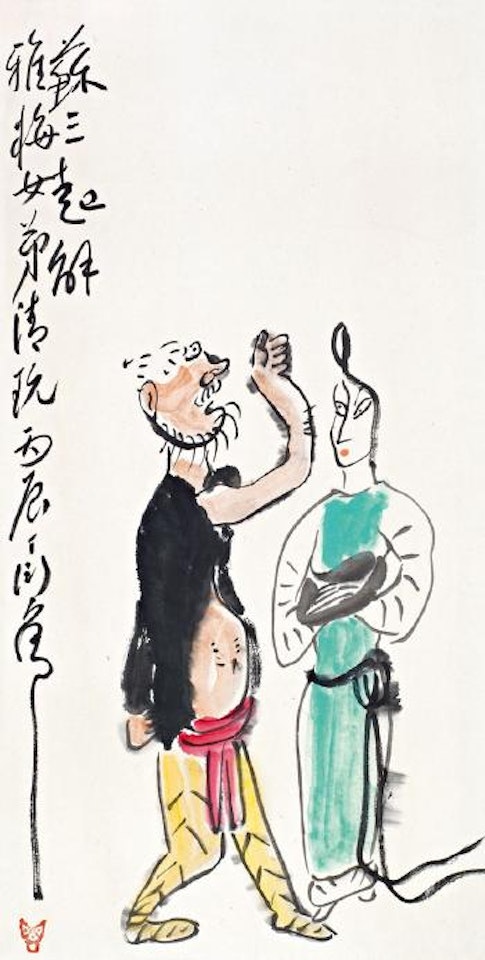 蘇三起解
雅梅女弟清玩丙辰丁衍庸